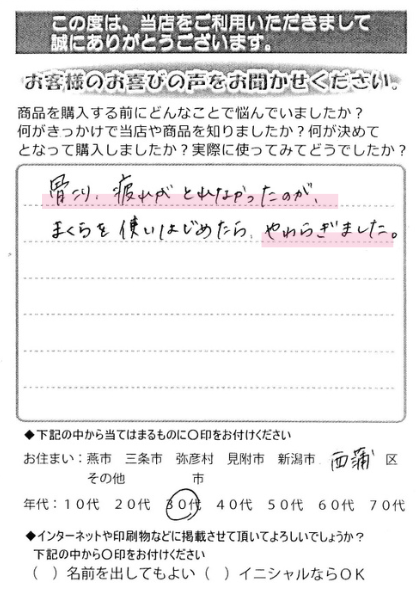 この度は、当店をご利用いただきまして
誠にありがとうございます。
お客様のお喜びの声をお聞かせください。
商品を購入する前にどんなことで悩んでいましたか？
何がきっかけで当店や商品を知りましたか？何が決めて
となって購入しましたか？実際に使ってみてどうでしたか？
肩こり、疲れがとれなかったのが、
まくらを使いはじめたら、やわらぎました。
◆下記の中から当てはまるものに〇印をお付けください
お住まい：燕市 三条市 弥彦村 見附市 新潟市 西蒲 区
その他 市
年代：１０代 ２０代 ３０代 ４０代 ５０代 ６０代 ７０代
◆インターネットや印刷物などに掲載させて頂いてよろしいでしょうか？
下記の中から〇印をお付けください
（ ）名前を出してもよい （ ）イニシャルならＯＫ